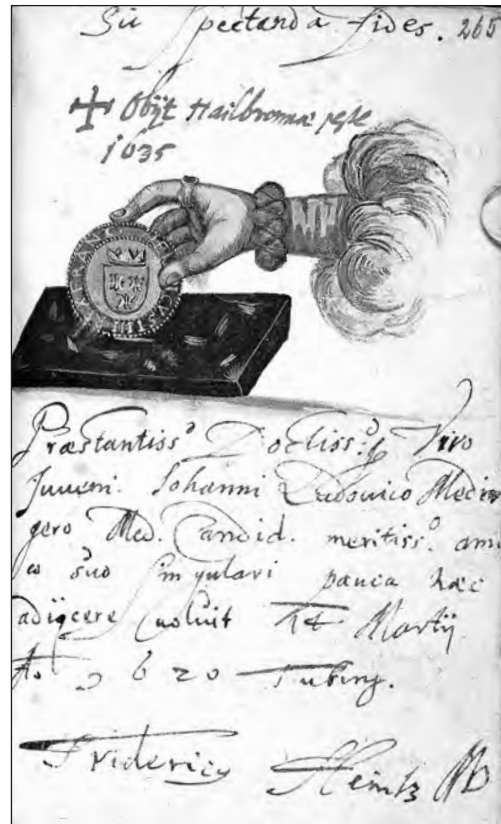 Sic Spectanda fides. 265
Obijt Hailbronnæ peste
1635
Præstantiss° Doctiss°q Viro
Juveni Johanni Ludovico Medin
gero Med. Candid. meritiss° ami
co suo singulari pauca hæc
adijcere voluit 14 Martij
A° 1620 Tubing.
Fridericus Heintz MD